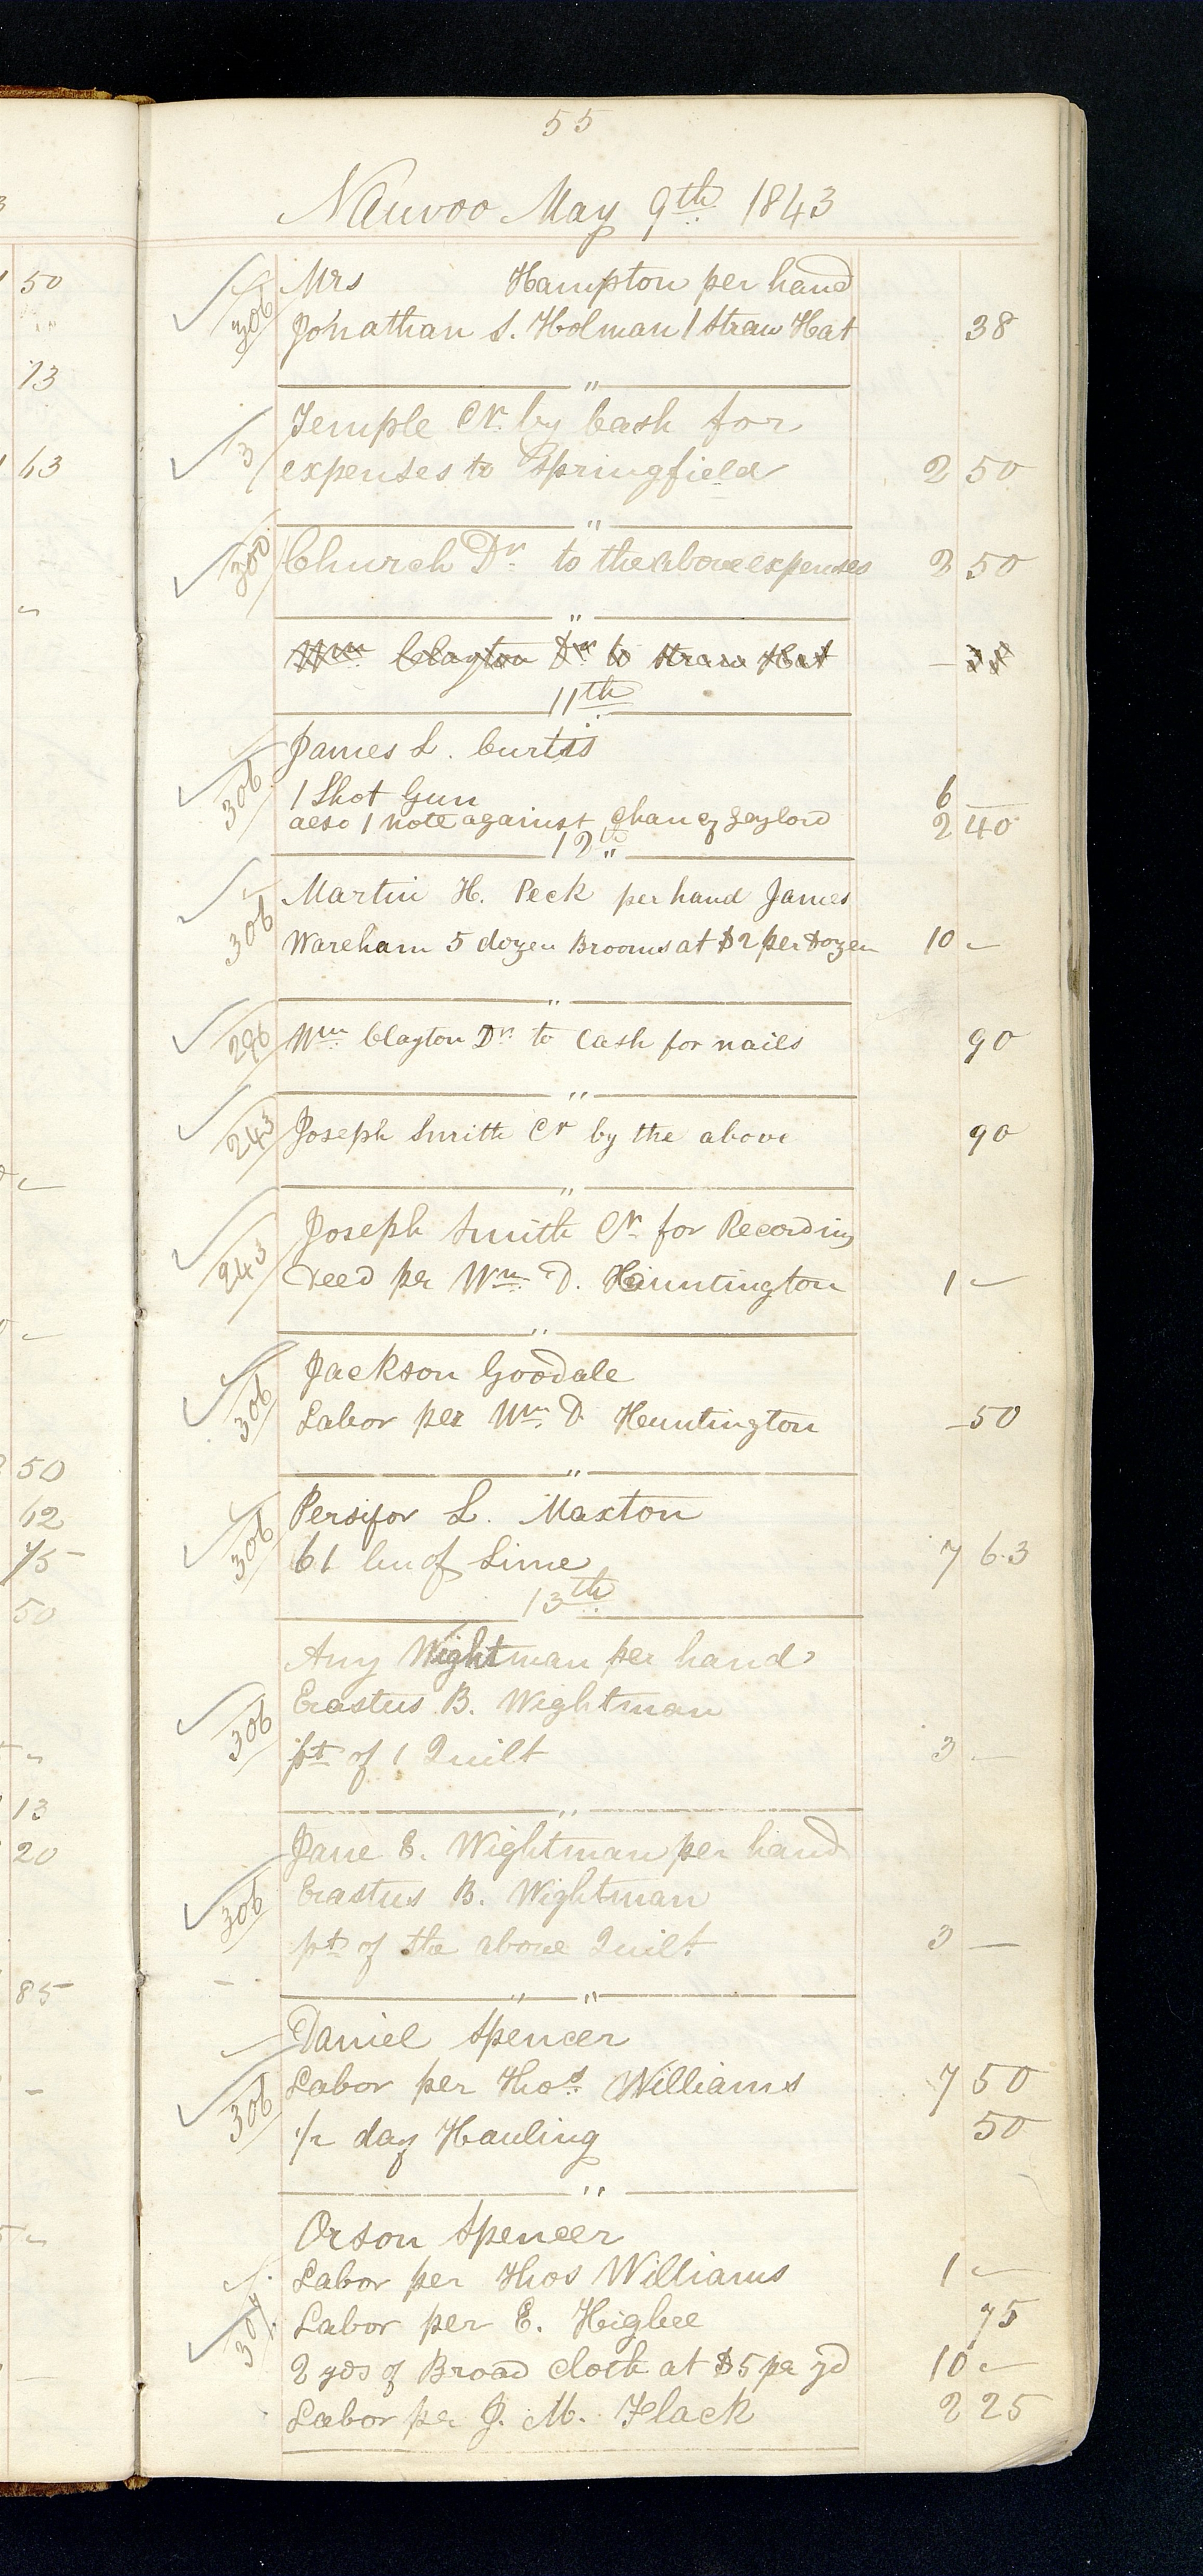 55
Nauvoo May 9th 1843
Mrs Hampton per hand
306 Jonathan S. Holman 1 Straw Hat 38
"
Temple Cr. by Cash for
3 expenses to Springfield 2 50
"
300 Church Dr. to the above expenses 2 50
"
Wm Clayton Dr to Straw Hat 38
11th
James L. Curtis
306 1 Shot Gun 6 —
also 1 note against Chancy Gaylord 2 40
12th "
Martin H. Peck per hand James
306 Wareham 5 dozen Brooms at $2 per Dozen 10 —
"
296 Wm Clayton Dr. to Cash for nails 90
"
243 Joseph Smith Cr by the above 90
"
Joseph Smith Cr. for Recording
243 deed per Wm D. Huntington 1 —
"
Jackson Goodale
306 Labor per Wm D Huntington — 50
"
Persifor L. Maxton
306 61 bu of Lime 7 63
13th
Amy Wightman per hand
Erastus B. Wightman
306 pt of 1 Quilt 3 —
"
Jane E. Wightman per hand
306 Erastus B. Wightman
pt of the above Quilt 3 —
" "
Daniel Spencer
306 Labor per Thos Williams 7 50
1/2 day Hauling 50
"
Orson Spencer
Labor per Thos Williams 1 —
307 Labor per E. Higbee 75
2 yds of Broad cloth at $5 per yd 10 —
Labor per J. M. Flack 2 25
50
13
63
50
62
75
50
13
20
85